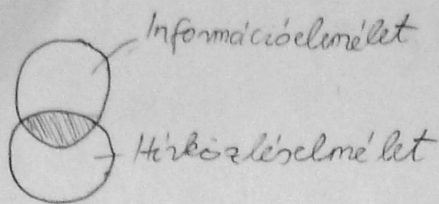 Információelmélet
Hírközléselmélet